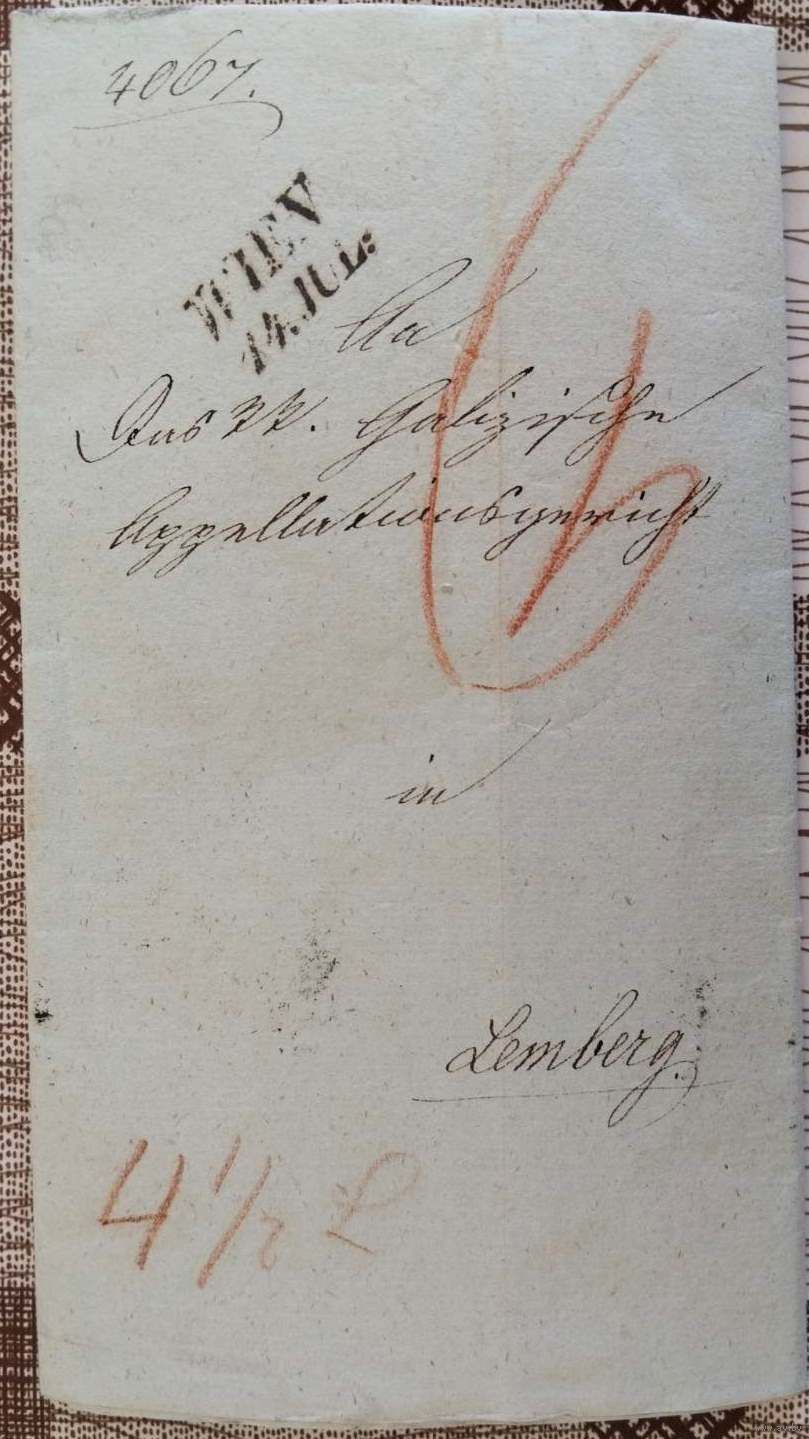 4067.
WIEN
14. JUL:
An
Das KK. Galizische
Appellationsgericht
in
Lemberg.
4 1/2 L